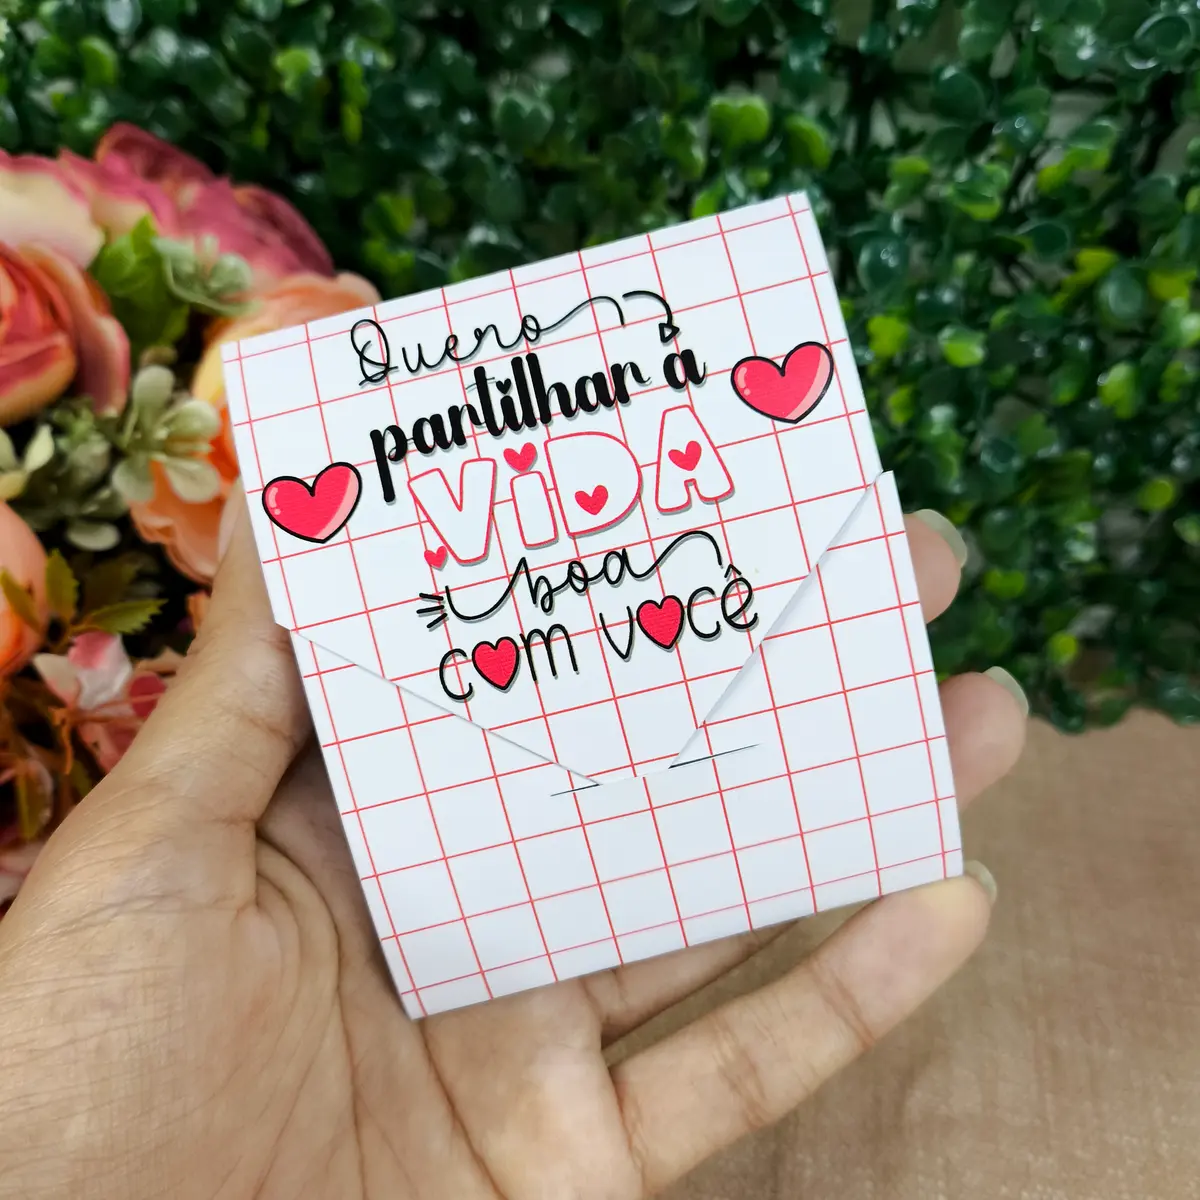 Quero
partilhar à
ViDA
boa
com você